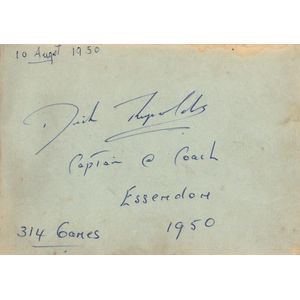 10 August 1950
Dick Reynolds
Captain @ Coach
Essendon
1950
314 Games